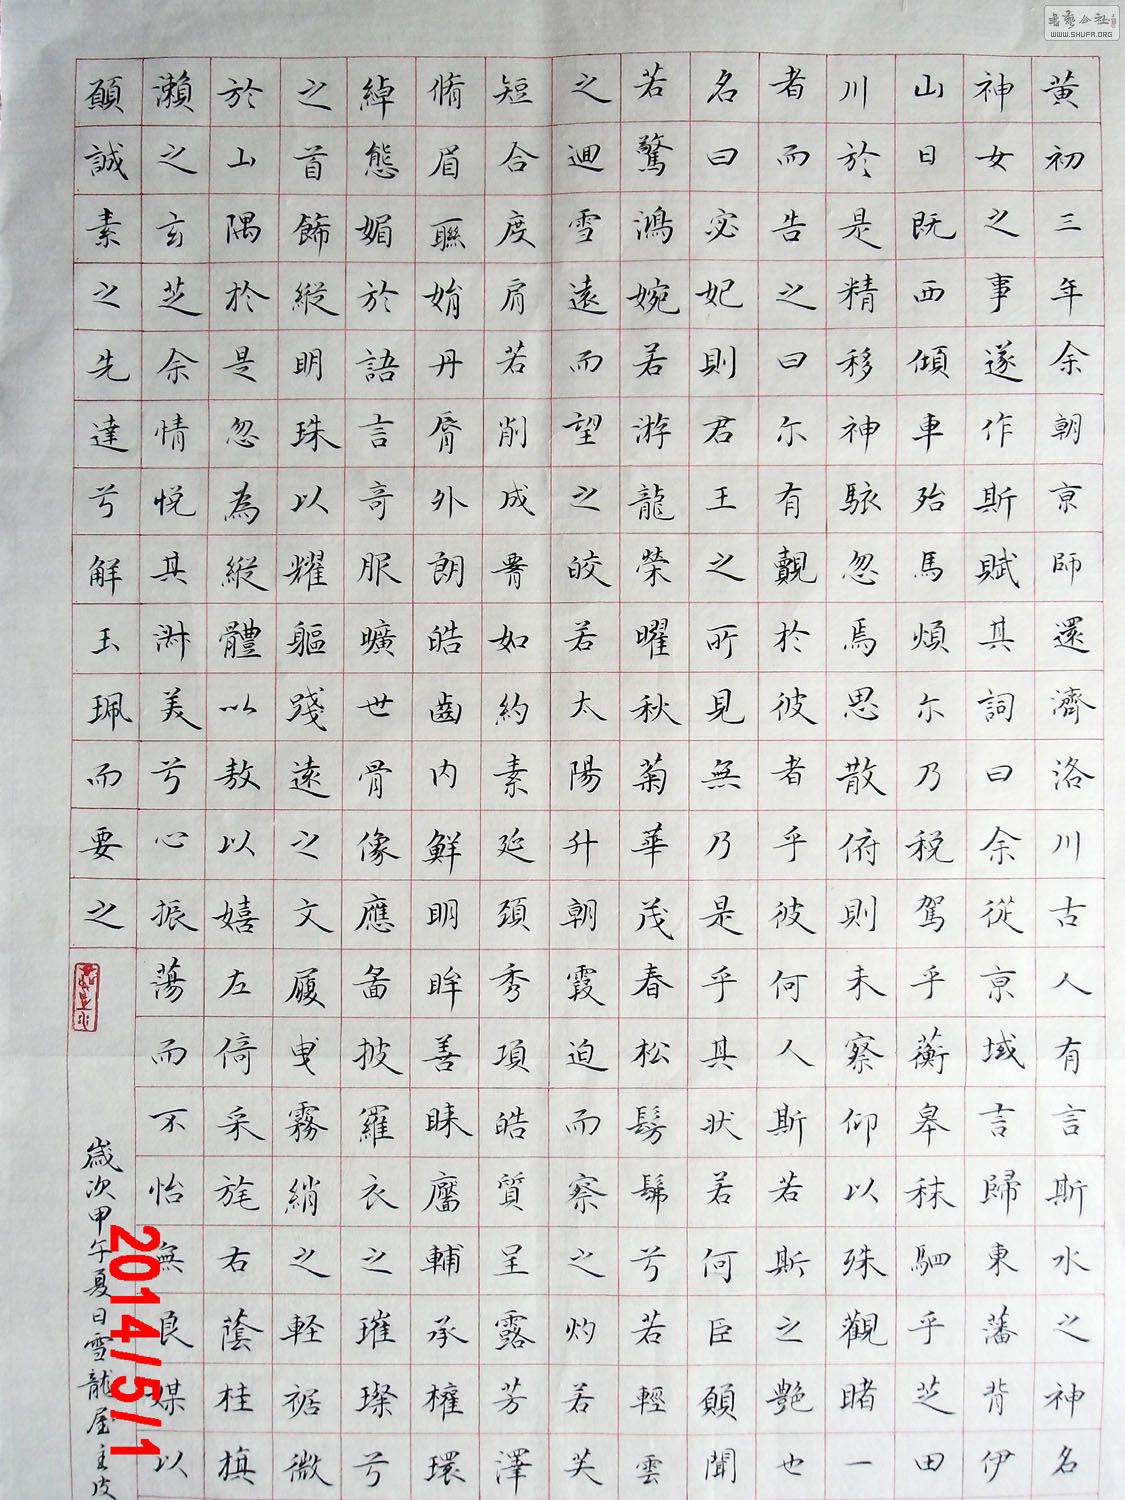 黄初三年余朝京師還濟洛川古人有言斯水之神名
神女之事遂作斯賦其詞曰余從京域言歸東藩背伊
山日既西傾車殆馬煩尔乃税駕乎蘅皋秣駟乎芝田
川於是精移神駭忽焉思散俯則未察仰以殊觀睹一
者而告之曰尔有覿於彼者乎彼何人斯若斯之艷也
名曰宓妃則君王之所見無乃是乎其狀若何臣願聞
若驚鴻婉若游龍榮曜秋菊華茂春松髣髴兮若輕雲
之迴雪遠而望之皎若太陽升朝霞迫而察之灼若芙
短合度肩若削成腰如約素延頸秀項皓質呈露芳澤
脩眉聯娟丹脣外朗皓齒内鮮明眸善睞靨輔承權環
綽態媚於語言奇服曠世骨像應圖披羅衣之璀璨兮
之首飾縱明珠以耀軀踐遠之文履曳霧綃之輕裾微
於山隅於是忽為縱體以敖以嬉左倚采旄右蔭桂旗
瀨之玄芝余情悦其淑美兮心振蕩而不怡無良媒以
願誠素之先達兮解玉珮而要之
歲次甲午夏日雪龍屋主皮
2014/5/1
書藝公社
WWW.SHUFA.ORG